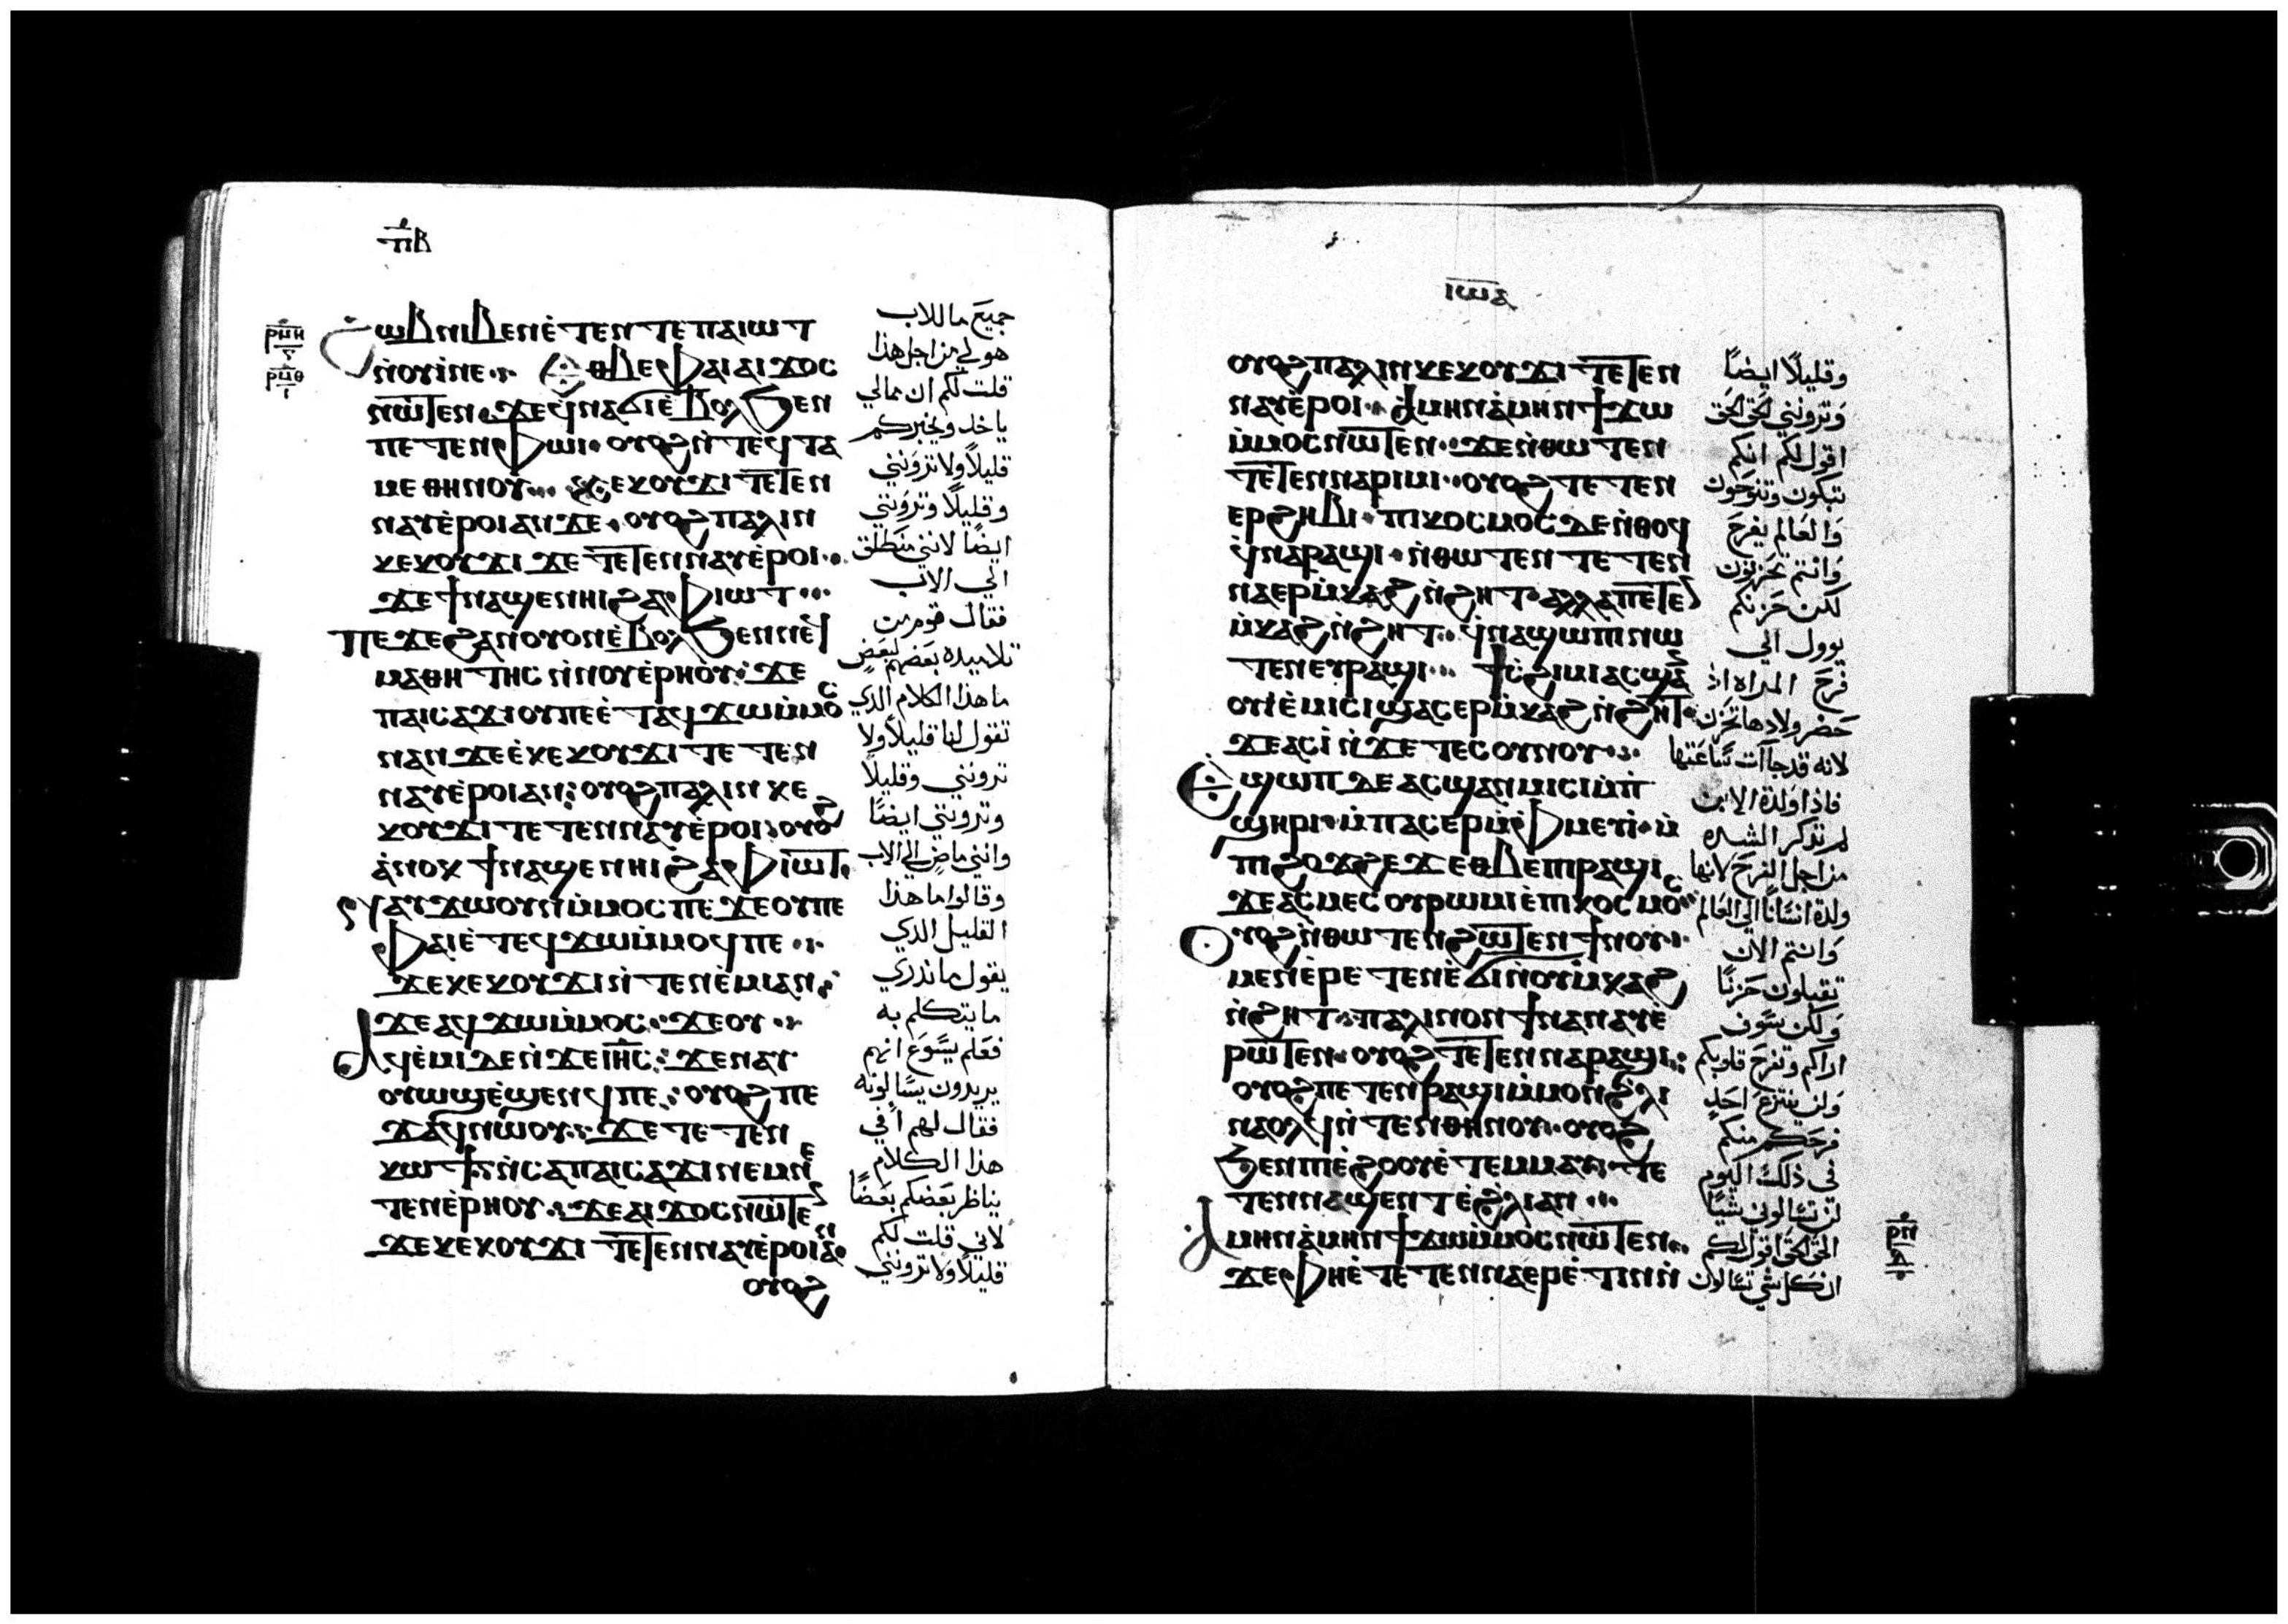 ⲡⲃ
ⲣⲙⲏ
ⲣⲙⲑ
ϩⲱⲃ ⲛⲓⲃⲉⲛ ⲉ̀ⲧⲉⲛⲧⲉ ⲡⲁⲓⲱⲧ
ⲛ̀ⲟⲩⲓ̀ ⲛⲉ ⲉⲑⲃⲉ ⲫⲁⲓ ⲁⲓϫⲟⲥ
ⲛⲱⲧⲉⲛ ϫⲉ ϥ̀ⲛⲁϭⲓ ⲉ̀ⲃⲟⲗ ϧⲉⲛ
ⲡⲉⲧⲉ ⲫⲱⲓ ⲟⲩⲟϩ ⲛ̀ⲧⲉϥⲧⲁ
ⲙⲉ ⲑⲏⲛⲟⲩ ⲕⲉⲕⲟⲩϫⲓ ⲧⲉⲧⲉⲛ
ⲛⲁⲩ ⲉ̀ⲣⲟⲓ ⲁⲛ ϫⲉ ⲟⲩⲟϩ ⲡⲁⲗⲓⲛ
ⲕⲉⲕⲟⲩϫⲓ ϫⲉ ⲧⲉⲧⲉⲛⲛⲁⲩ ⲉ̀ⲣⲟⲓ
ϫⲉ ϯⲛⲁϣⲉⲛⲏⲓ ϩⲁ ⲫⲓⲱⲧ
ⲡⲉϫⲉ ϩⲁⲛⲟⲩⲟⲛ ⲉ̀ⲃⲟⲗ ϧⲉⲛ ⲛⲉϥ
ⲙⲁⲑⲏⲧⲏⲥ ⲛ̀ⲛⲟⲩⲉ̀ⲣⲏⲟⲩ ϫⲉ
ⲡⲁⲓⲥⲁϫⲓ ⲟⲩ ⲡⲉ ⲉ̀ⲧⲁϥϫⲱ ⲙ̀ⲙⲟⲥ
ⲛⲁⲛ ϫⲉ ⲉ̀ⲕⲉⲕⲟⲩϫⲓ ⲧⲉⲧⲉⲛ
ⲛⲁⲩ ⲉ̀ⲣⲟⲓ ⲁⲛ ⲟⲩⲟϩ ⲡⲁⲗⲓⲛ ⲕⲉ
ⲕⲟⲩϫⲓ ⲧⲉⲧⲉⲛⲛⲁⲩ ⲉ̀ⲣⲟⲓ ⲟⲩⲟϩ
ⲁ̀ⲛⲟⲕ ϯⲛⲁϣⲉⲛⲏⲓ ϩⲁ ⲫⲓⲱⲧ
ⲛⲁⲩϫⲱ ⲟⲩⲛ ⲙ̀ⲙⲟⲥ ⲡⲉ ϫⲉ ⲟⲩ ⲡⲉ
ⲫⲁⲓ ⲉ̀ⲧⲉϥϫⲱ ⲙ̀ⲙⲟϥ ⲡⲉ
ϫⲉ ⲕⲉⲕⲟⲩϫⲓ ⲛ̀ⲧⲉⲛⲉ̀ⲙⲓ ⲁⲛ
ϫⲉ ⲁϥϫⲱ ⲙ̀ⲙⲟⲥ ϫⲉ ⲟⲩ
ⲁϥⲉ̀ⲙⲓ ⲇⲉ ⲛ̀ϫⲉ ⲓⲏⲥ ϫⲉ ⲛⲁⲩ
ⲟⲩⲱϣ ⲉ̀ϣⲉⲛϥ ⲡⲉ ⲟⲩⲟϩ ⲡⲉ
ϫⲁϥ ⲛⲱⲟⲩ ϫⲉ ⲧⲉⲧⲉⲛ
ⲕⲱϯ ⲛ̀ⲥⲁ ⲡⲁⲓⲥⲁϫⲓ ⲛⲉⲙ ⲛⲉ
ⲧⲉⲛⲉ̀ⲣⲏⲟⲩ ϫⲉ ⲁⲓϫⲟⲥ ⲛⲱⲧⲉⲛ
ϫⲉ ⲕⲉⲕⲟⲩϫⲓ ⲧⲉⲧⲉⲛⲛⲁⲩ ⲉ̀ⲣⲟⲓ ⲁⲛ
ⲟⲩⲟϩ
جميع ما للاب
هو لي من اجل هذا
قلت لكم ان مما لي
ياخد ويخبركم
قليلاً ولا تروننى
وقليلاً وتروننى
ايضاً لاننى منطلق
الي الاب
فقال قوم من
تلاميده بعضهم لبعض
ما هذا الكلام الدي
تقول لنا قليلاً ولا
تروننى وقليلاً
وتروننى ايضًا
واننى ماض الي الاب
وقالوا ما هذا
القليل الدي
يقول ما ندري
ما يتكلم به
فعلم يسوع انهم
يريدون يسالونه
فقال لهم افي
هذا الكلام
يناظر بعضكم بعضاً
لاني قلت لكم
قليلاً ولا تروننى
ⲓⲱⲁ
ⲟⲩⲟϩ ⲡⲁⲗⲓⲛ ⲕⲉⲕⲟⲩϫⲓ ⲧⲉⲧⲉⲛ
ⲛⲁⲩ ⲉ̀ⲣⲟⲓ ⲁⲙⲏⲛ ⲁ̀ⲙⲏⲛ ϯϫⲱ
ⲙ̀ⲙⲟⲥ ⲛⲱⲧⲉⲛ ϫⲉ ⲛ̀ⲑⲱⲧⲉⲛ
ⲧⲉⲧⲉⲛⲛⲁⲣⲓⲙⲓ ⲟⲩⲟϩ ⲧⲉⲧⲉⲛ
ⲉⲣϩⲏⲃⲓ ⲡⲓⲕⲟⲥⲙⲟⲥ ⲇⲉ ⲛ̀ⲑⲟϥ
ϥ̀ⲛⲁⲣⲁϣⲓ ⲛ̀ⲑⲱⲧⲉⲛ ⲧⲉⲧⲉⲛ
ⲛⲁⲉⲣⲙ̀ⲕⲁϩ ⲛ̀ϩⲏⲧ ⲁⲗⲗⲁ ⲡⲉⲧⲉⲛ
ⲙ̀ⲕⲁϩ ⲛ̀ϩⲏⲧ ϥ̀ⲛⲁϣⲱⲡⲓ ⲛⲱ
ⲧⲉⲛ ⲉⲩⲣⲁϣⲓ ϯⲥϩⲓⲙⲓ ⲁⲥϣⲁⲛ
ⲟⲩⲓ ⲉ̀ⲙⲓⲥⲓ ϣⲁⲥⲉⲣⲙ̀ⲕⲁϩ ⲛ̀ϩⲏⲧ
ϫⲉ ⲁⲥⲓ̀ ⲛ̀ϫⲉ ⲧⲉⲥⲟⲩⲛⲟⲩ
ⲉϣⲱⲡ ⲇⲉ ⲁⲥϣⲁⲛⲙⲓⲥⲓ ⲙ̀ⲡⲓ
ϣⲏⲣⲓ ⲙ̀ⲡⲁⲥⲉⲣⲫⲙⲉⲩⲓ̀ ⲙ̀
ⲡⲓϩⲟϫϩⲉϫ ⲉⲑⲃⲉ ⲡⲓⲣⲁϣⲓ
ϫⲉ ⲁⲥⲙⲉⲥ ⲟⲩⲣⲱⲙⲓ ⲉ̀ⲡⲓⲕⲟⲥⲙⲟⲥ
ⲟⲩⲟϩ ⲛ̀ⲑⲱⲧⲉⲛ ϩⲱⲧⲉⲛ ϯⲛⲟⲩ
ⲙⲉⲛ ⲉ̀ⲣⲉⲧⲉⲛⲉ̀ϭⲓ ⲛ̀ⲟⲩⲙ̀ⲕⲁϩ
ⲛ̀ϩⲏⲧ ⲡⲁⲗⲓⲛ ⲟⲛ ϯⲛⲁⲛⲁⲩ ⲉ̀
ⲣⲱⲧⲉⲛ ⲟⲩⲟϩ ⲧⲉⲧⲉⲛⲛⲁⲣⲁϣⲓ
ⲟⲩⲟϩ ⲡⲉⲧⲉⲛⲣⲁϣⲓ ⲙ̀ⲙⲟⲛ ϩ̀ⲗⲓ
ⲛⲁⲟⲗϥ ⲛ̀ⲧⲉⲛ ⲑⲏⲛⲟⲩ ⲟⲩⲟϩ
ϧⲉⲛ ⲡⲓⲉ̀ϩⲟⲟⲩ ⲉ̀ⲧⲉⲙⲙⲁⲩ ⲧⲉ
ⲧⲉⲛⲛⲁϣⲉⲛⲧ ⲉ̀ϩ̀ⲗⲓ ⲁⲛ
ⲁⲙⲏⲛ ⲁ̀ⲙⲏⲛ ϯϫⲱ ⲙ̀ⲙⲟⲥ ⲛⲱⲧⲉⲛ
ϫⲉ ⲫⲏ ⲉ̀ⲧⲉⲧⲉⲛⲛⲁⲉⲣⲉ̀ⲧⲓⲛ ⲛ̀
ⲣⲛ
ⲇ
وقليلاً ايضاً
وتروننى الحق الحق
اقول لكم انكم
تبكون وتنوحون
والعالم يفرح
وانتم تحزنون
لكن حزنكم
يوول الي
فرح المراه اذ
حضر ولادها تحزن
لانه قد جاآت ساعتها
فاذا ولدة الابن
لم تذكر الشده
من اجل الفرح لانها
ولدة انسانًا الي العالم
وانتم الان
تقبلون حزنًا
ولكن سوف
اراكم وتفرح قلوبكم
ولن ينتزع احد
فرحكم منكم
في ذلك اليوم
لن تسالوني شيًا
الحق الحق اقول لكم
ان كل شي تسالون